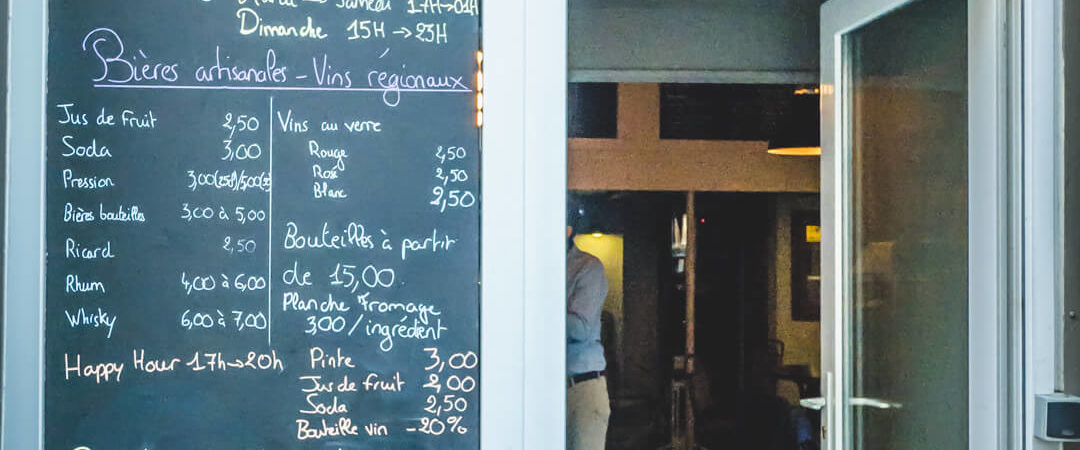 Samedi 17H→01H
Dimanche 15H→23H
Bières artisanales - Vins régionaux
Jus de Fruit 2,50
Soda 3,00
Pression 3,00
Bières bouteilles 3,00 à 5,00
Ricard 2,50
Rhum 4,00 à 6,00
Whisky 6,00 à 7,00
Vins au verre
Rouge 2,50
Rosé 2,50
Blanc 2,50
Bouteilles à partir
de 15,00
Planche Fromage
3,00/ingrédient
Happy Hour 17h→20h
Pinte 3,00
Jus de fruit 2,00
Soda 2,50
Bouteille vin -20%